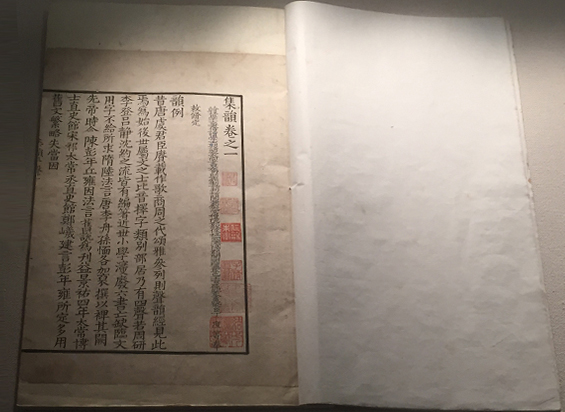 集韻卷之一
敕譔定
韻例
昔唐虞君臣賡載作歌商周之代頌雅參列則聲韻經見此
焉為始後世屬文之士比音擇字類別部居乃有四聲若周研
李登呂靜沈約之流皆有編著近世小學寖廢六書亡缺臨文
用字不給所求隋陸法言唐李舟孫愐各加裒撰以裨其闕
先帝時令陳彭年丘雍因法言韻就為刊益景祐四年太常博
士直史館宋祁太常丞直史館鄭戩建言彭年雍所定多用
舊文繁略失當因